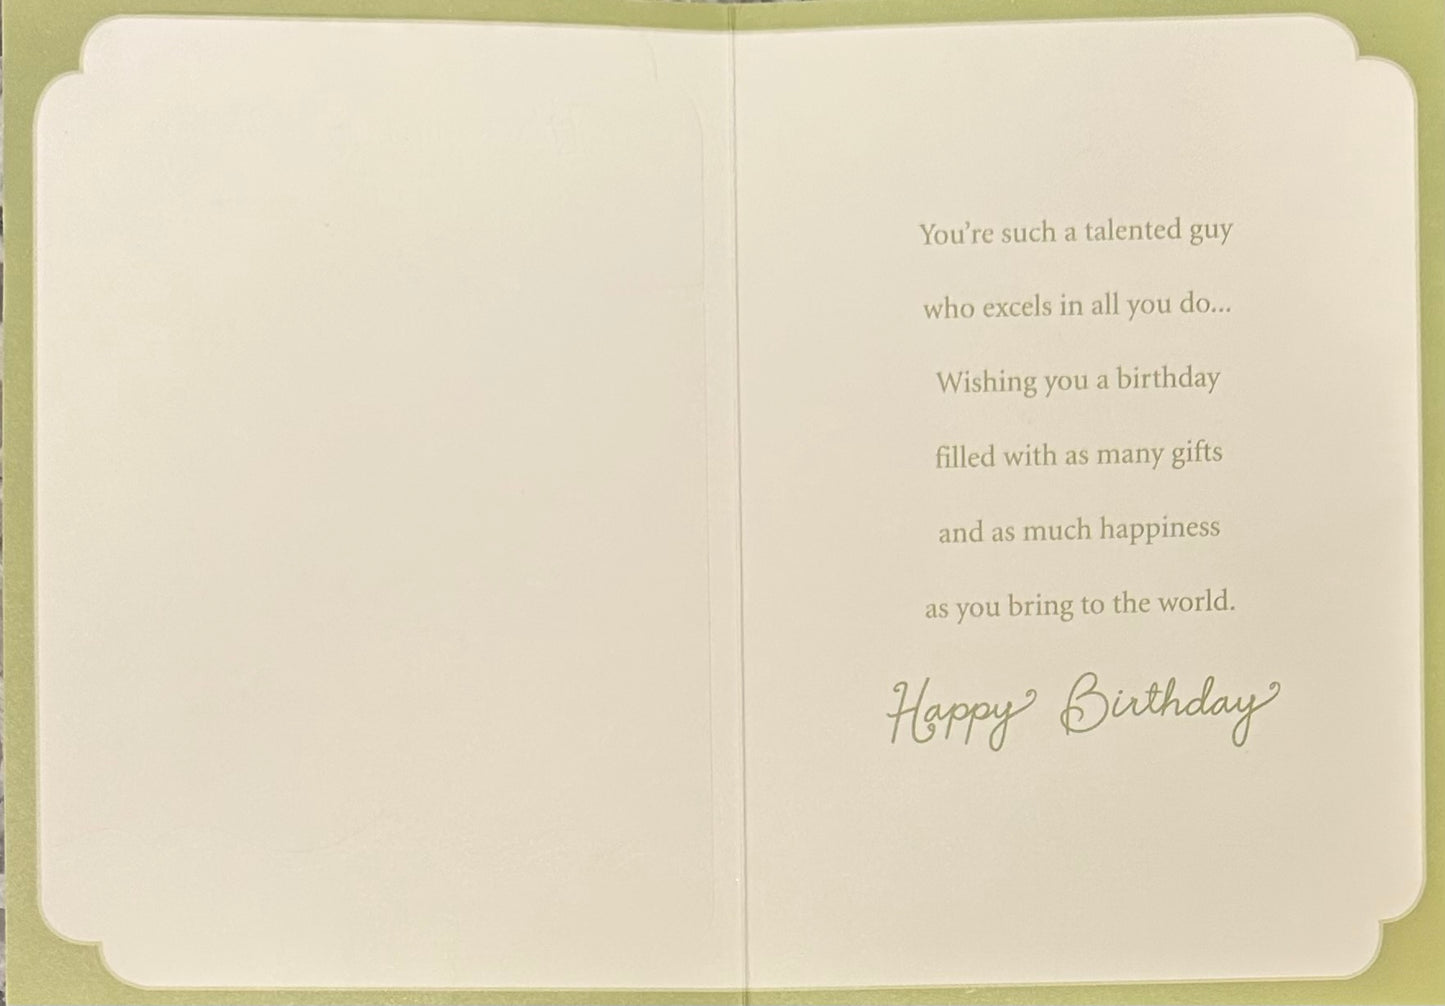 You're such a talented guy
who excels in all you do...
Wishing you a birthday
filled with as many gifts
and as much happiness
as you bring to the world.
Happy Birthday